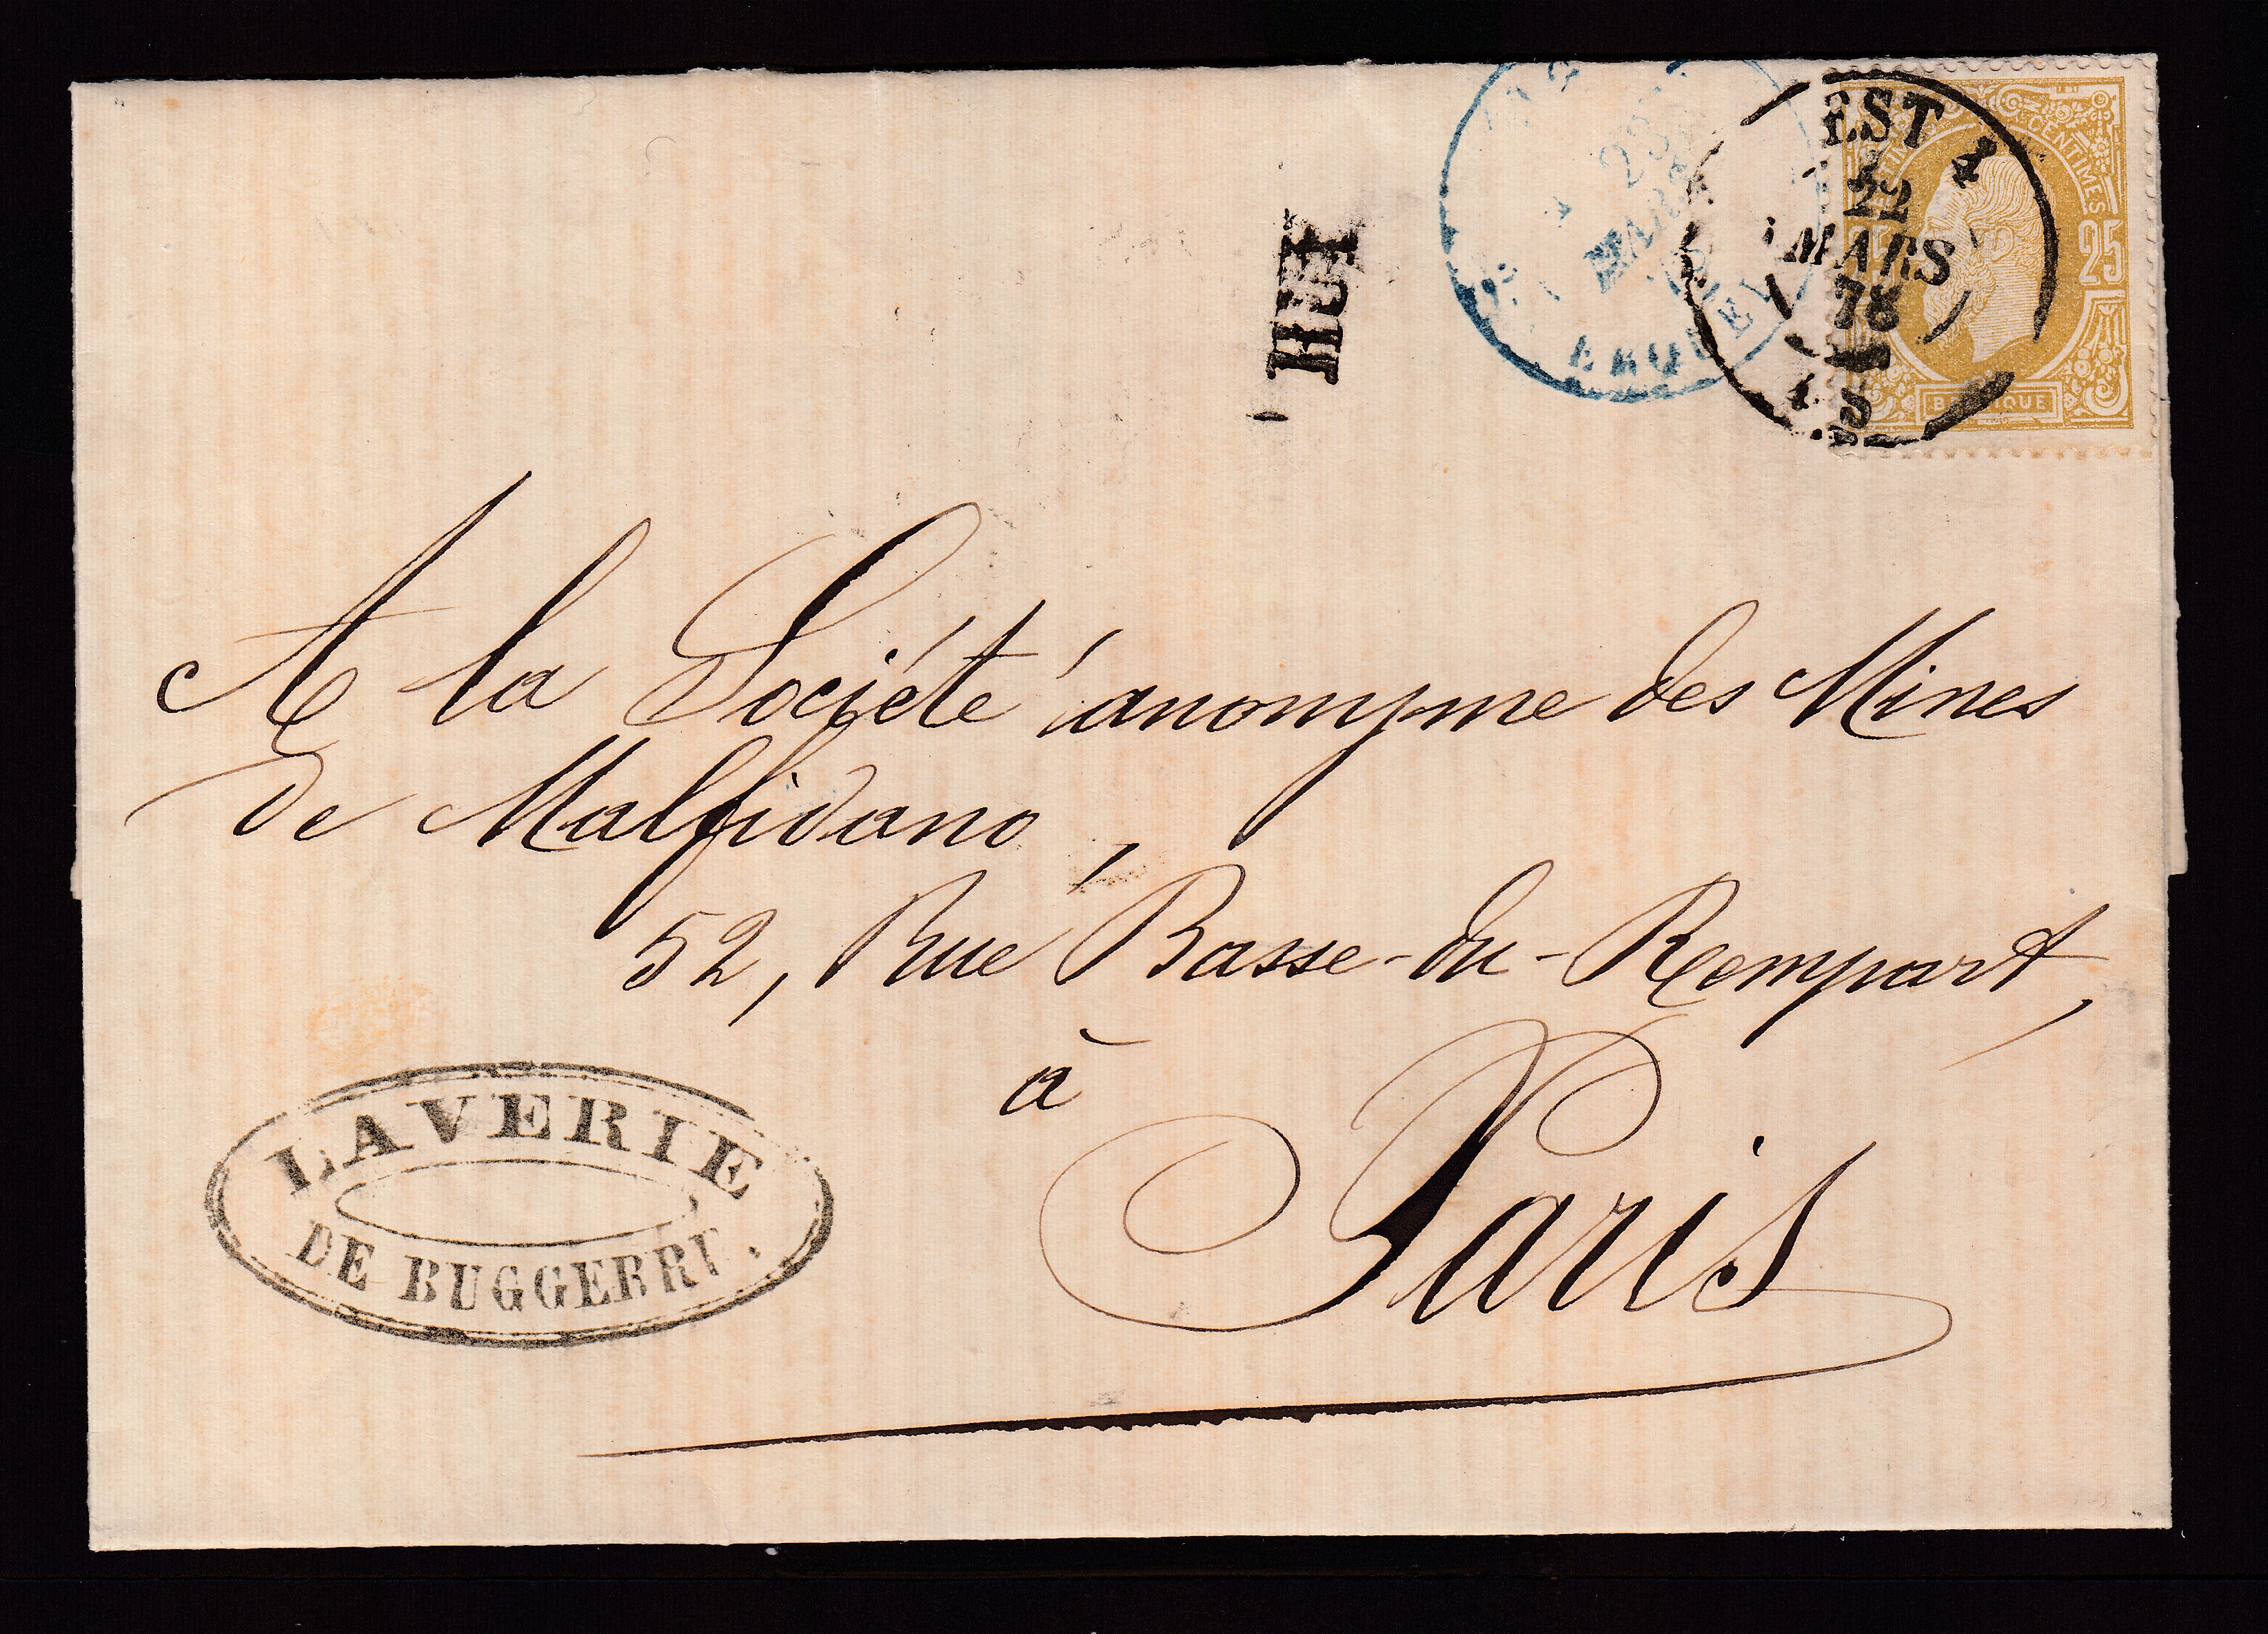 EST 1
22
MARS
78
5
CENTIMES
25
BELGIQUE
23
MARS
HUY
A la Société anonyme des Mines
de Malfidano,
52, Rue Basse-du-Rempart,
à
Paris
LAVERIE
DE BUGGERRU.